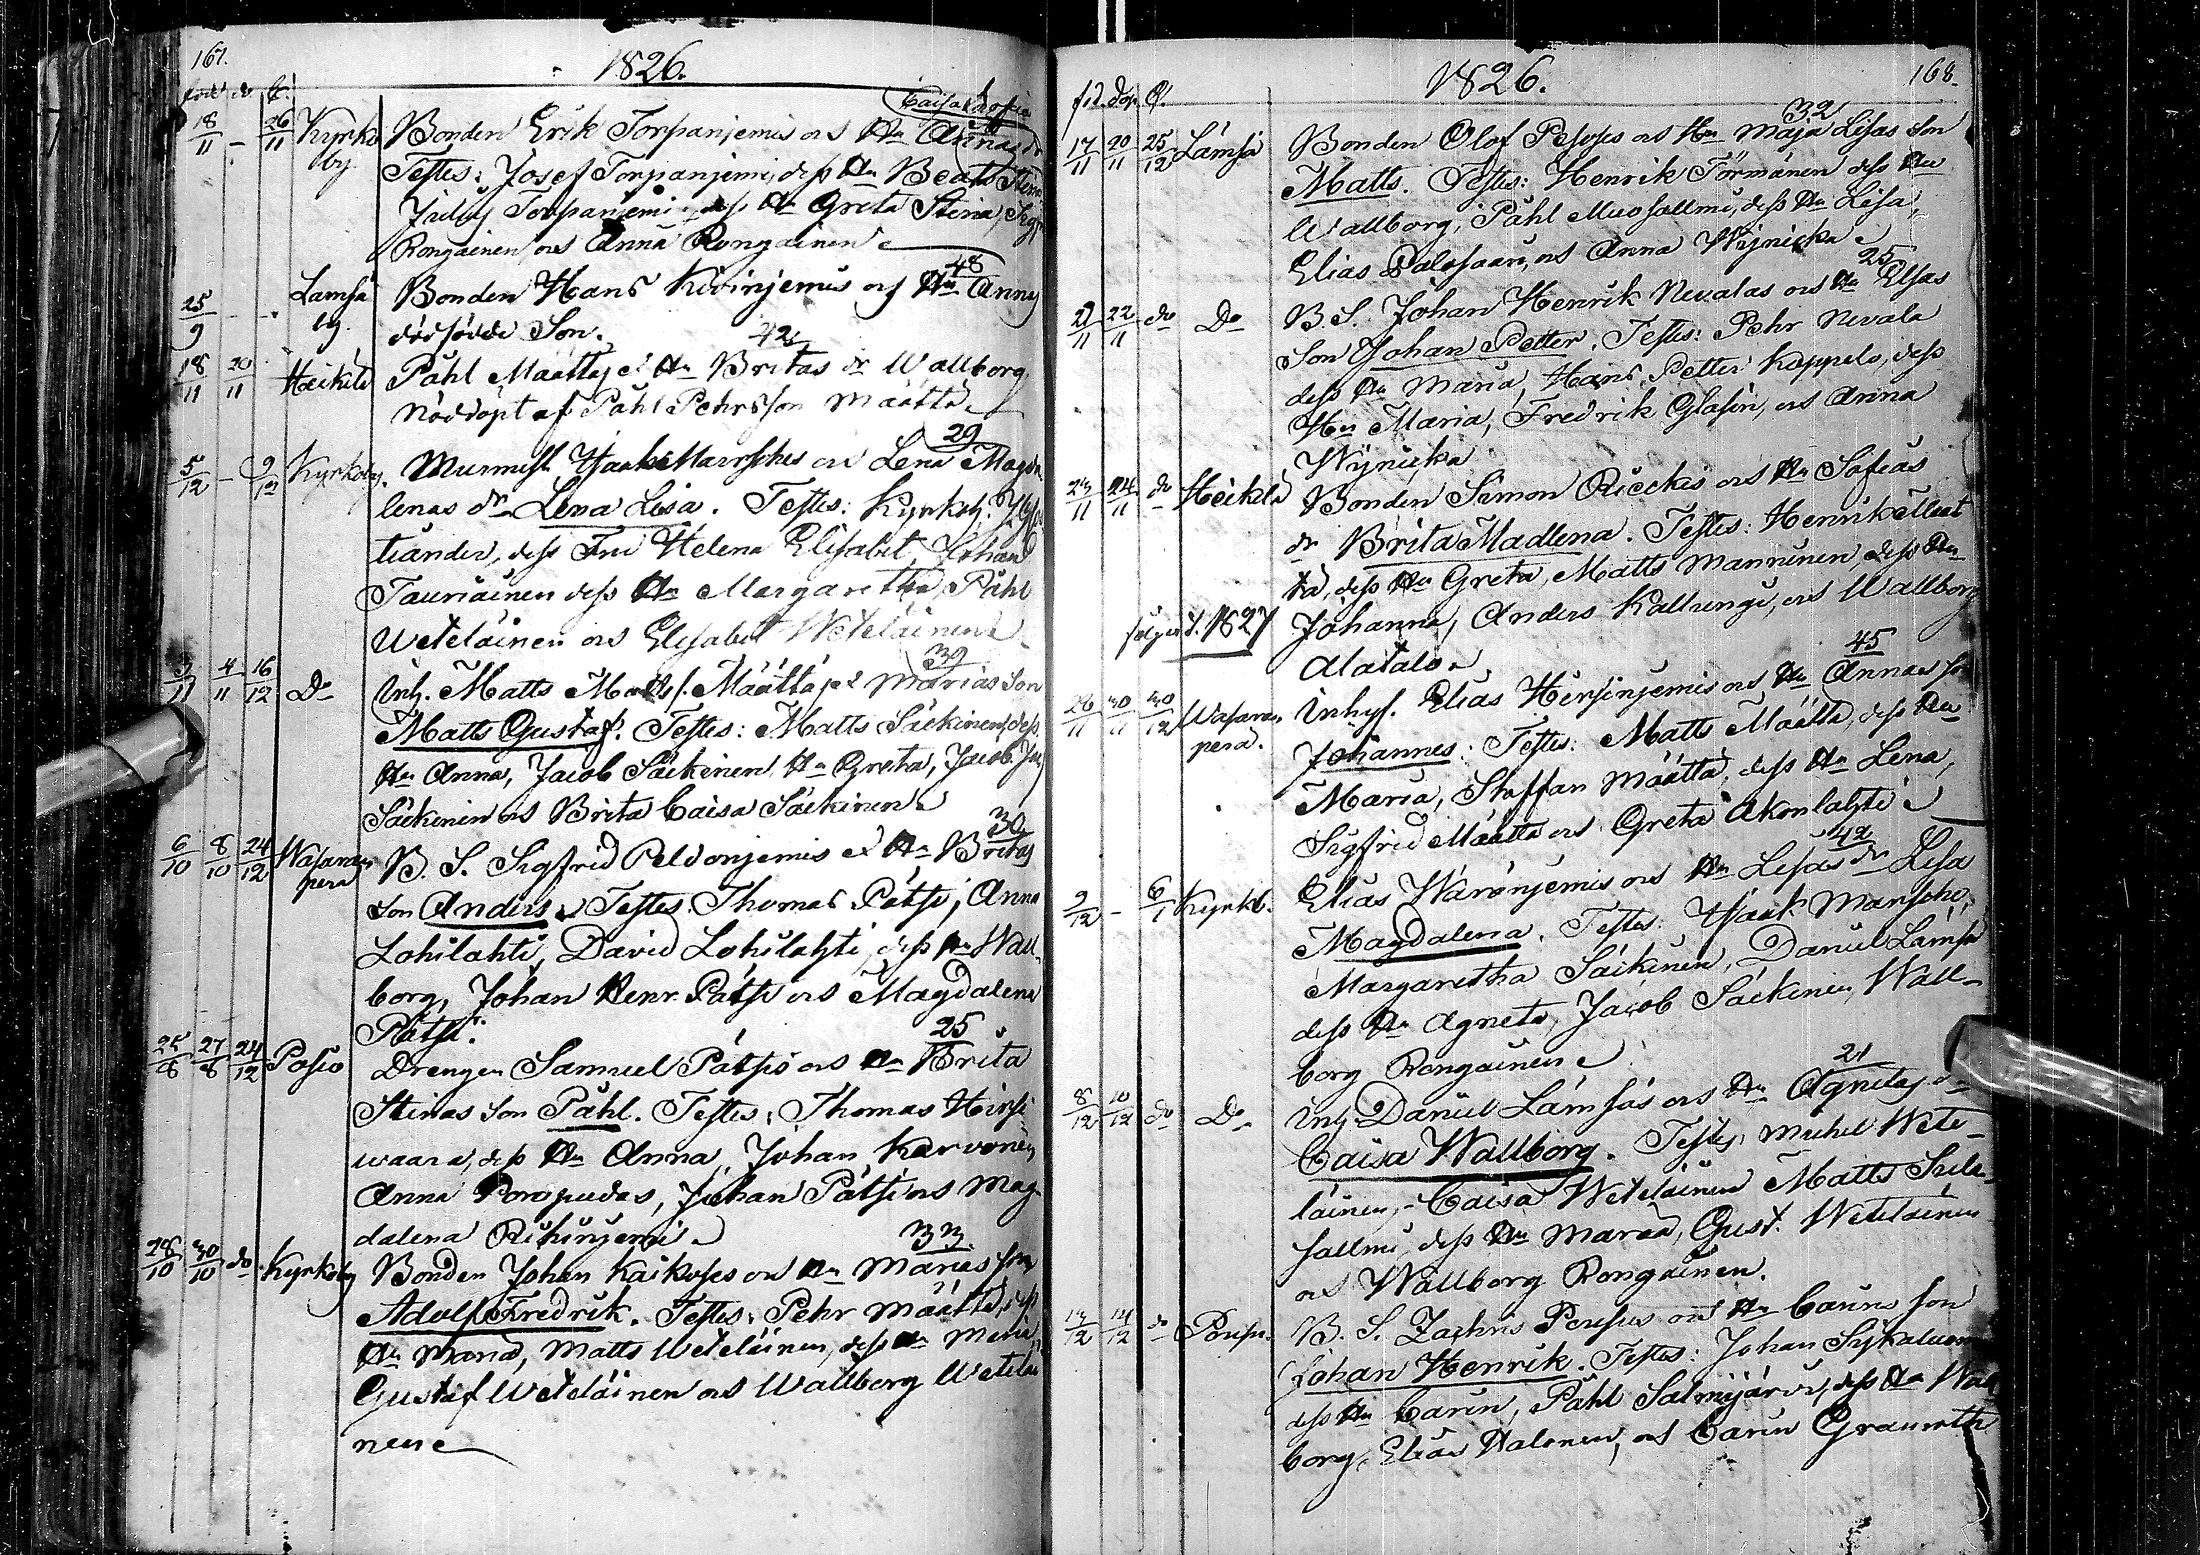 167.
1826.
född do k.
Caisa Sofia
18/11 - 26/11 Kyrko by Bonden Erik Torpanjemis os Hu Annas dr
Testes: Josef Torpanjemi, dess Hu Beata Stina
Julius Torpanjemi, dess Hu Greta Stina, Sigf.
Rongainen os Anna Rongainen
48
25/9 - - Lamsä by. Bonden Hans Kivinjemis os Hu Annas
dödfödde Son.
42
18/11 20/11 Heikilä Påhl Määttäs o Hu Britas dr Wallborg
Nöddöpt af Påhl Pehrsson Määttä
29
5/12 - 9/12 Kyrkoby. Murmest. Isaak Marschs os Lena Magda
lenas dr Lena Lisa. Testes: Kyrkoh.
tiander, dess Fru Helena Elisabet, Johan
Tauriainen dess Hu Margaretha, Påhl
Weteläinen os Elisabet Weteläinen
39
3/11 4/11 16/12 Do Inh. Matts Matss. Määttäs o Marias Son
Matts Gustaf. Testes: Matts Säckinen, dess
Hu Anna, Jacob Säckinen, Hu Greta, Jacob Jac
Säckinen os Brita Caisa Säckinen
30
6/10 8/10 24/12 Wasaran pera B. S. Sigfrid Peldonjemis o Hu Britas
son Anders. Testes. Thomas Pätsi, Anna
Lohilahti, David Lohilahti, dess Hu Wall-
borg, Johan Henr. Pätsi os Magdalena
Pätsi.
25
25/8 27/8 24/12 Posio Drengen Samuel Pätsis os Hu Brita
Stinas Son Påhl. Testes: Thomas Hirsi-
waara, dess Hu Anna, Johan Karvonen,
Anna Poropudas, Johan Pätsi os Mag-
dalena Riihinjemi.
33
28/10 30/10 do Kyrkoby Bonden Johan Kaikoses os Hu Marias son
Adolf Fredrik. Testes: Pehr Määttä, dess
Hu Maria, Matts Weteläinen, dess Hu Maria
Gustaf Weteläinen os Wallborg Wetelai
nen
1826.
168.
föd. döp. k.
32
17/11 20/11 25/12 Lämsä Bonden Olof Pesoses os Hu Maja Lisas Son
Matts. Testes: Henrik Törmänen dess Hu
Wallborg, Påhl Muosallmi, dess Hu Lisa,
Elias Palosaari, os Anna Wijnicka
25
21/11 22/11 do Do B. S. Johan Henrik Nevalas os Hu Elsas
Son Johan Petter. Testes: Pehr Nevala
dess Hu Maria, Hans Petter Kappelo, dess
Hu Maria, Fredrik Glasin, os Anna
Wijnicka
23/11 24/11 do Heikilä Bonden Simon Rieckis os Hu Sofias
dr Brita Madlena. Testes: Henrik Määt
tä, dess Hu Greta, Matts Manninen, dess Hu
följer t. 1827 Johanna, Anders Kallunge, os Wallborg
Alatalo
45
28/11 30/11 30/12 Wasaran pera. Inhys. Elias Hirsinjemis os Hu Annas son
Johannes. Testes: Matts Määttä, dess Hu
Maria, Staffan Määttä, dess Hu Lena,
Sigfrid Määttä os Greta Akonlahti
42
9/12 - 6/1 Kyrkb. Elias Waronjemis os Hu Lisas dr Lisa
Magdalena. Testes: Isaak Marsch,
Margaretha Säikinen, Daniel Lämsä
dess Hu Agneta, Jacob Säckinen, Wall-
borg Rongainen
21
8/12 10/12 do Do Inh. Daniel Lämsäs os Hu Agnetas dr
Caisa Wallborg. Testes, Michel Wete-
läinen, Caisa Weteläinen Matts Suila-
sallmi, dess Hu Maria, Gust. Weteläinen
os Wallborg Rongainen.
13/12 14/12 do B. S. Zachris os Hu Carins son
Johan Henrik. Testes: Johan Sijkaluoma
dess Hu Carin, Påhl Salmijärvi, dess Hu Wal
borg, Elias Halonen, os Carin Granroth